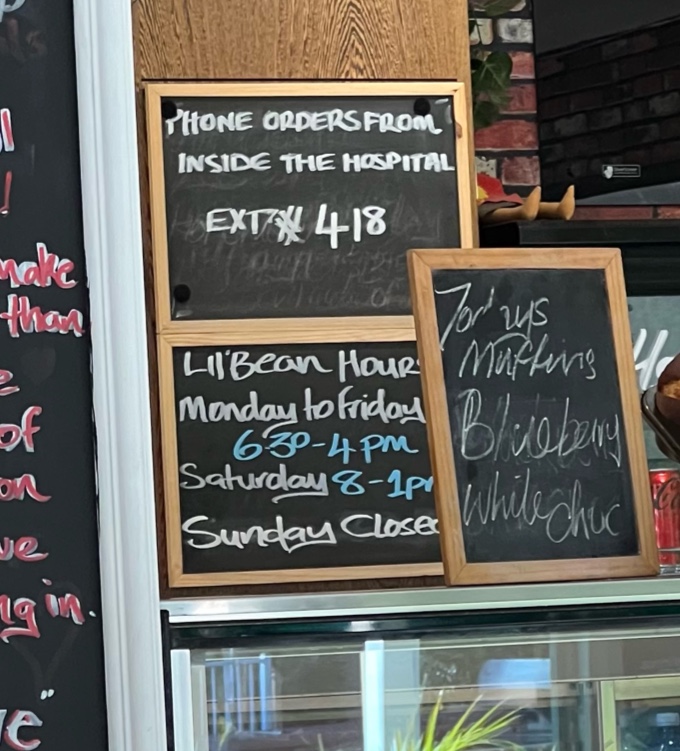 make
than
of
on
ve
ng in.
e"
PHONE ORDERS FROM
INSIDE THE HOSPITAL
EXT 418
Lil'Bean Hours
Monday to Friday
6:30-4pm
Saturday 8-1p
Sunday Closed
Tod'ys
Muffins
Blueberry
White choc